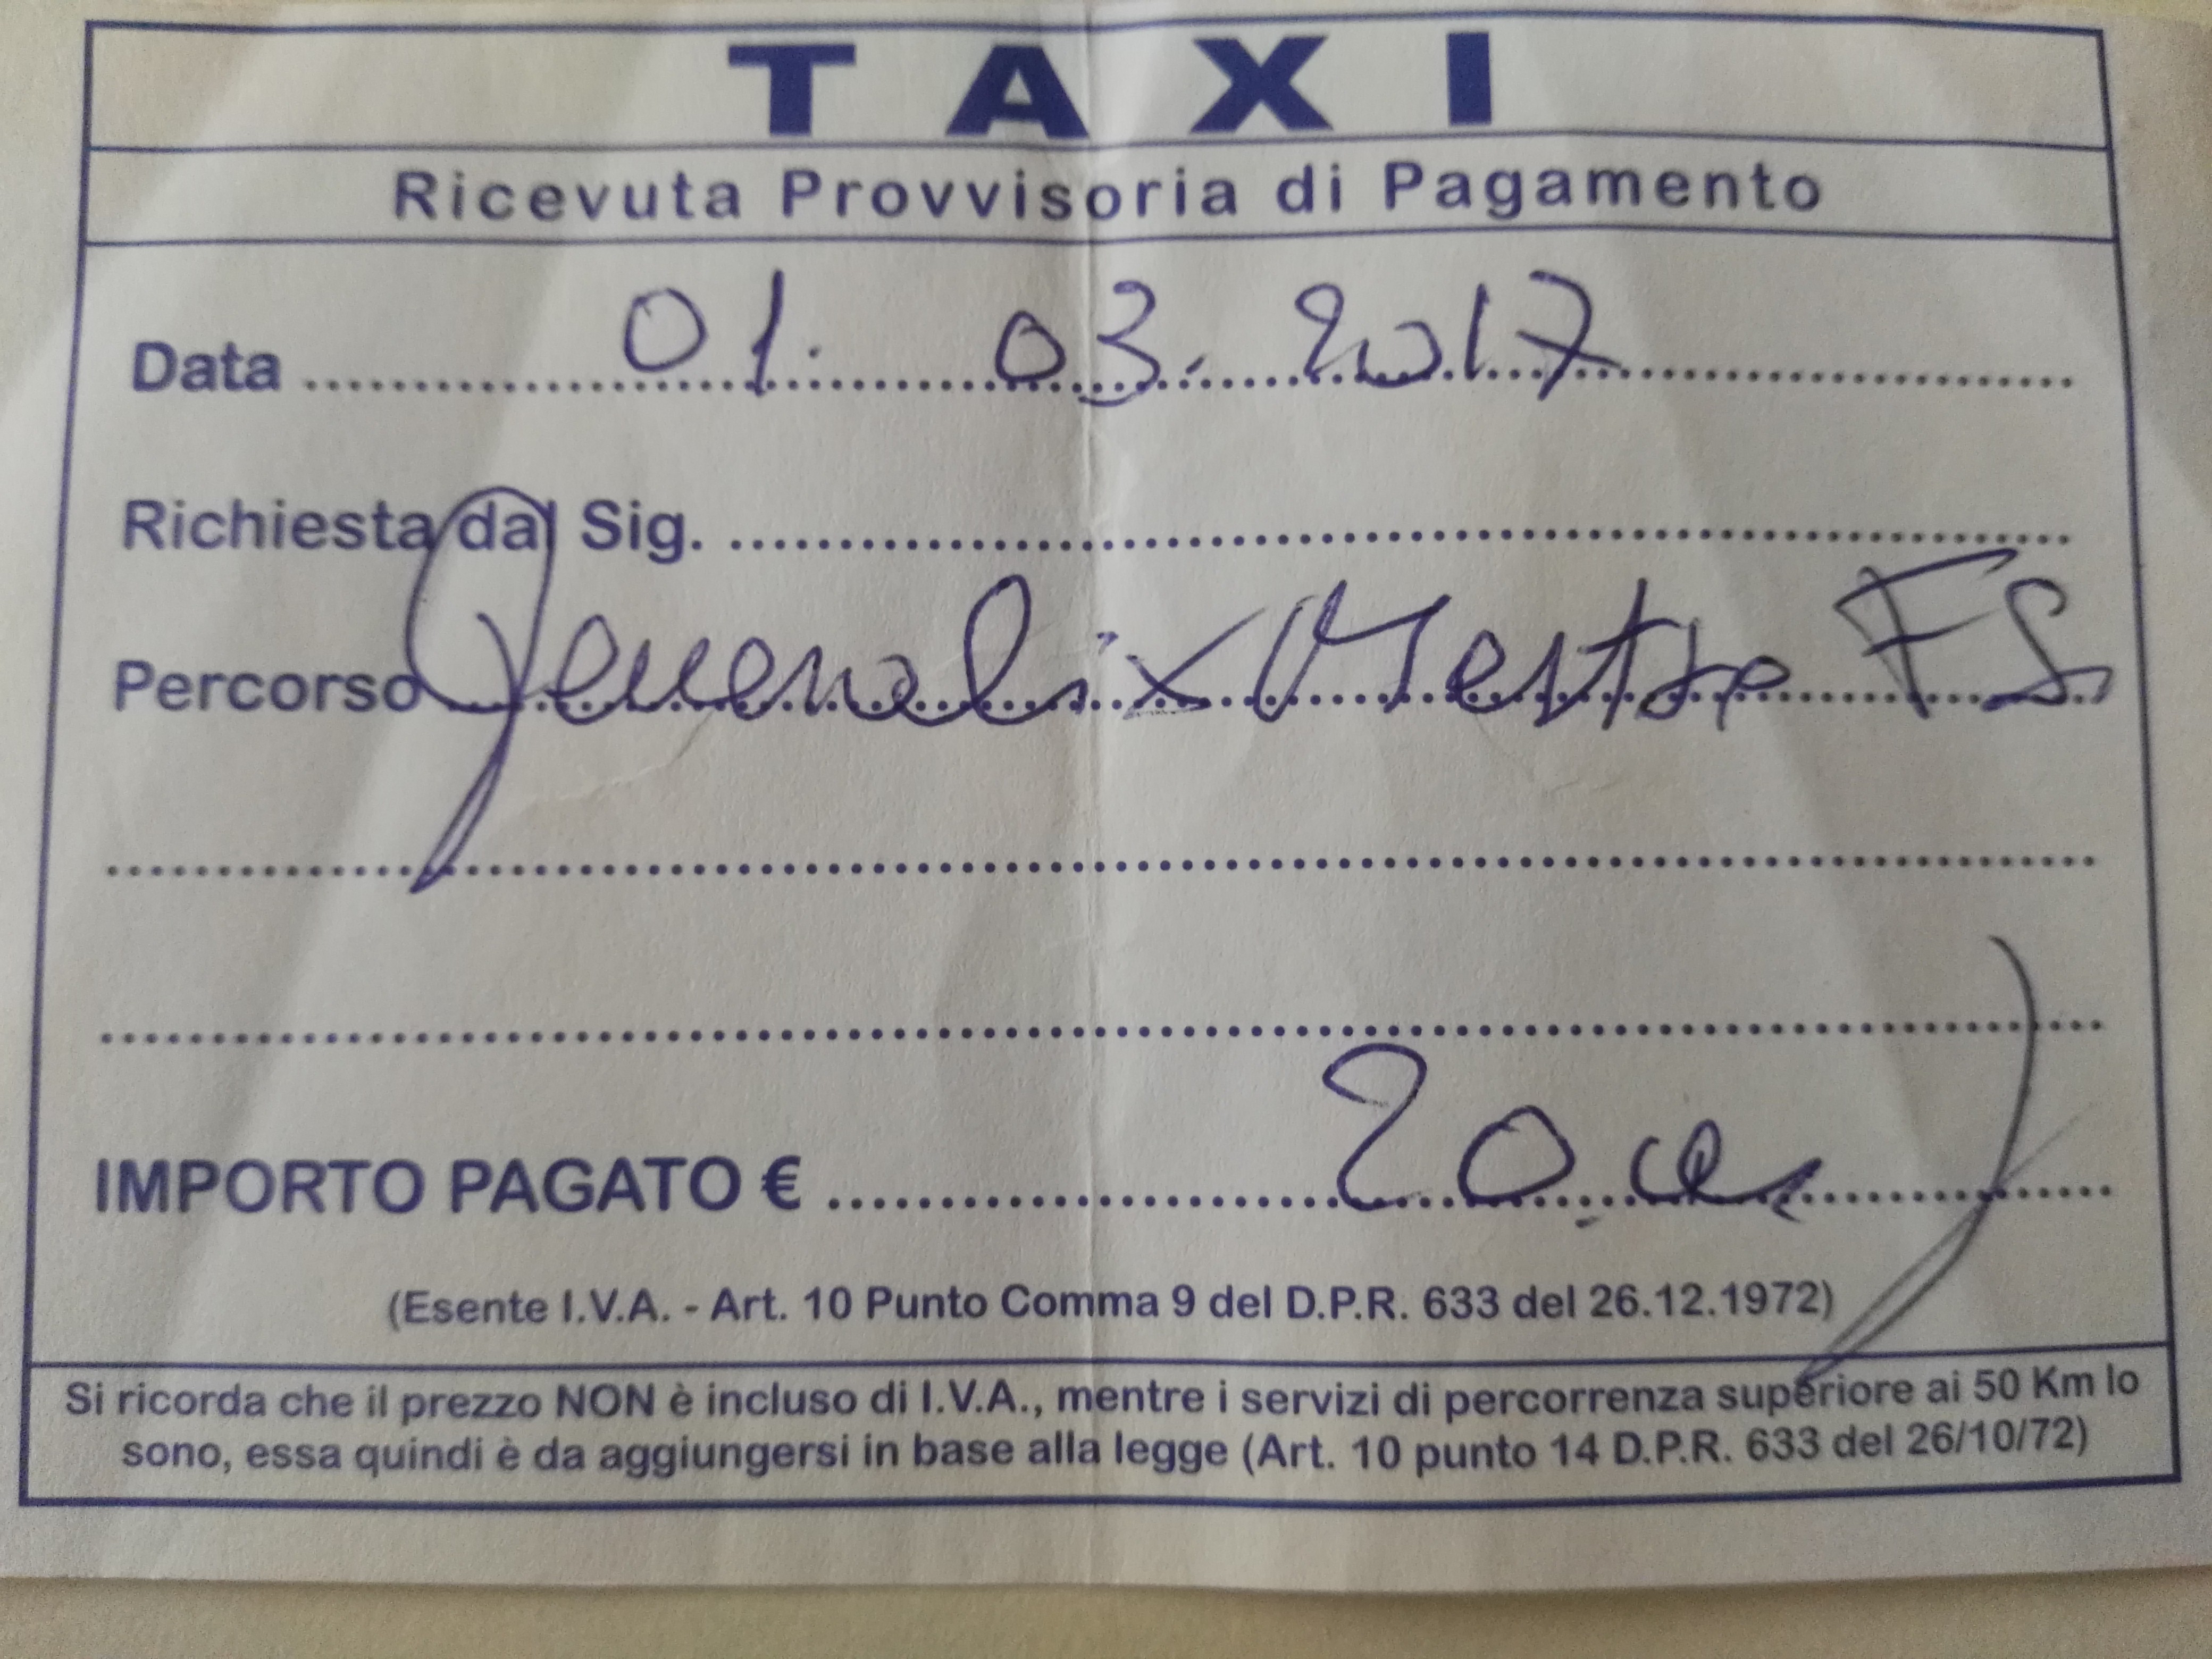 TAXI
Ricevuta Provvisoria di Pagamento
Data 01. 03. 2017
Richiesta dal Sig.
Percorso Generali x Mestre FS
IMPORTO PAGATO € 20,
(Esente I.V.A. - Art. 10 Punto Comma 9 del D.P.R. 633 del 26.12.1972)
Si ricorda che il prezzo NON è incluso di I.V.A., mentre i servizi di percorrenza superiore ai 50 Km lo
sono, essa quindi è da aggiungersi in base alla legge (Art. 10 punto 14 D.P.R. 633 del 26/10/72)